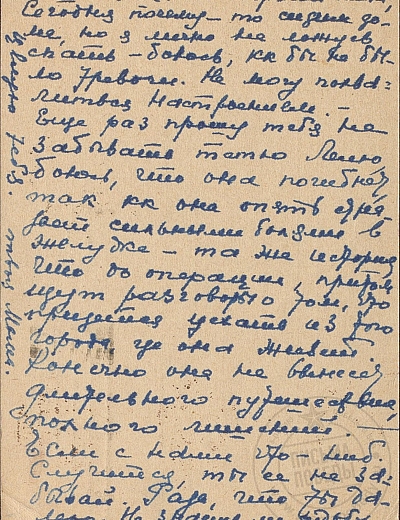 Сегодня почему-то сидим до-
ма, но я лично не ложусь
спать – боюсь, кк бы не бы-
ло тревоги. Не могу похва-
литься настроением. –
Еще раз прошу тебя не
забывать тетю Лену,
боюсь, что она погибнет,
так кк она опять стра-
дает сильными болями в
желудке – та же история
что до операции, притом
идут разговоры о том, что
придется уехать из того
города где она живет.
Конечно она не вынесет
длительного путешествия,
полного лишений —
Если с нами что-ниб.
случится, ты ее не за-
бывай Рада, что ты да-
леко. Не
Целую тебя. твоя
ПИСЬМА